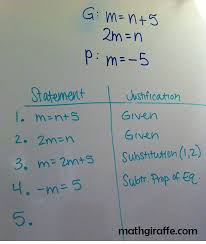 G: m=n+5
2m=n
P: m=-5
Statement Justification
1. m=n+5 Given
2. 2m=n Given
3. m=2m+5 Substitution (1,2)
4. -m=5 Subtr. Prop of Eq.
5.
mathgiraffe.com